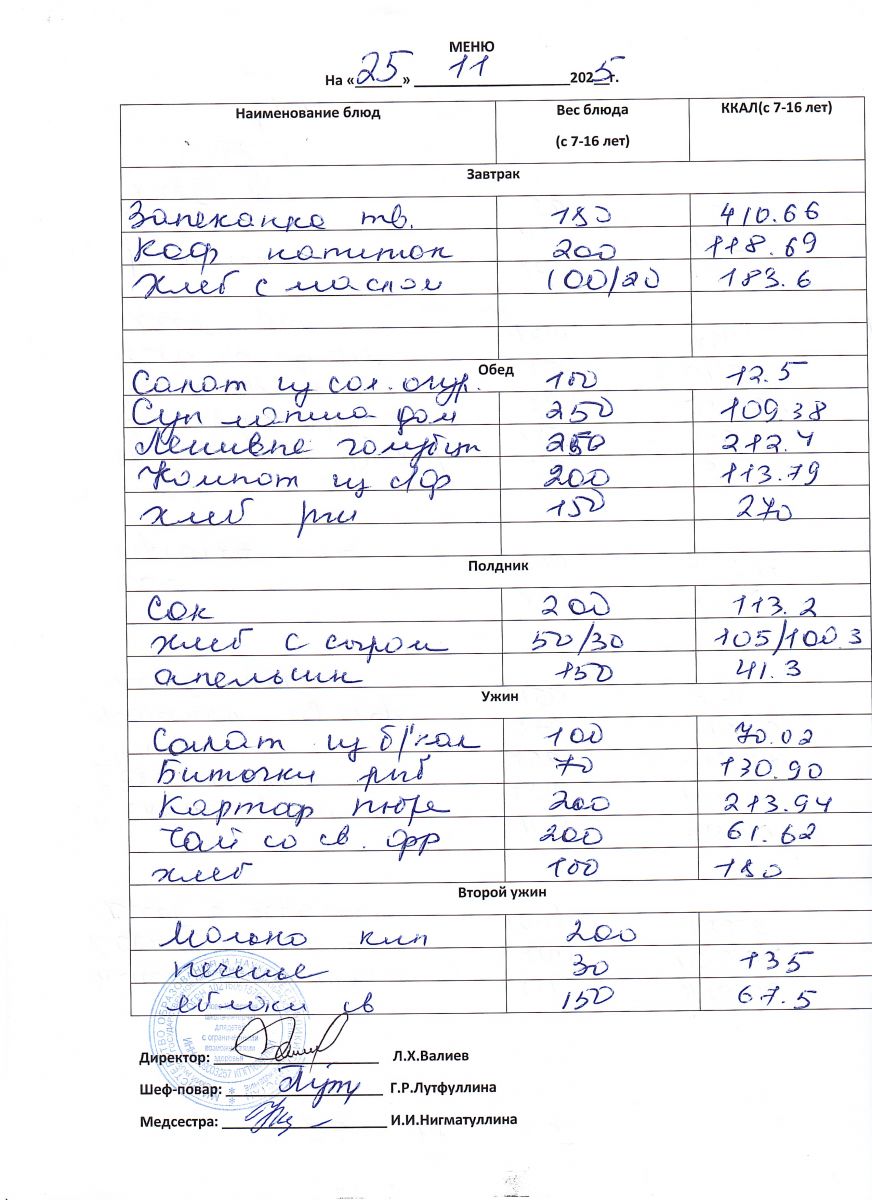 МЕНЮ
На «25» 11 2025г.
Наименование блюд Вес блюда (с 7-16 лет) ККАЛ(с 7-16 лет)
Завтрак
Запеканка тв. 180 410.66
Коф напиток 200 118.69
Хлеб с маслом 100/20 183.6
Обед
Салат из сол. огур. 100 12.5
Суп лапша дом 250 109.38
Ленивые голубцы 250 212.4
Компот из с/ф 200 113.79
хлеб рж 150 270
Полдник
Сок 200 113.2
хлеб с сыром 50/30 105/100.3
апельсин 150 41.3
Ужин
Салат из б/кал 100 70.02
Биточки рыб 70 130.90
Картоф пюре 200 213.94
Чай со св. фр 200 61.62
хлеб 100 180
Второй ужин
Молоко кип 200
печенье 30 135
яблоки св 150 67.5
для детей
с ограниченными
возможностями
здоровья
Директор: Л.Х.Валиев
Шеф-повар: Г.Р.Лутфуллина
Медсестра: И.И.Нигматуллина